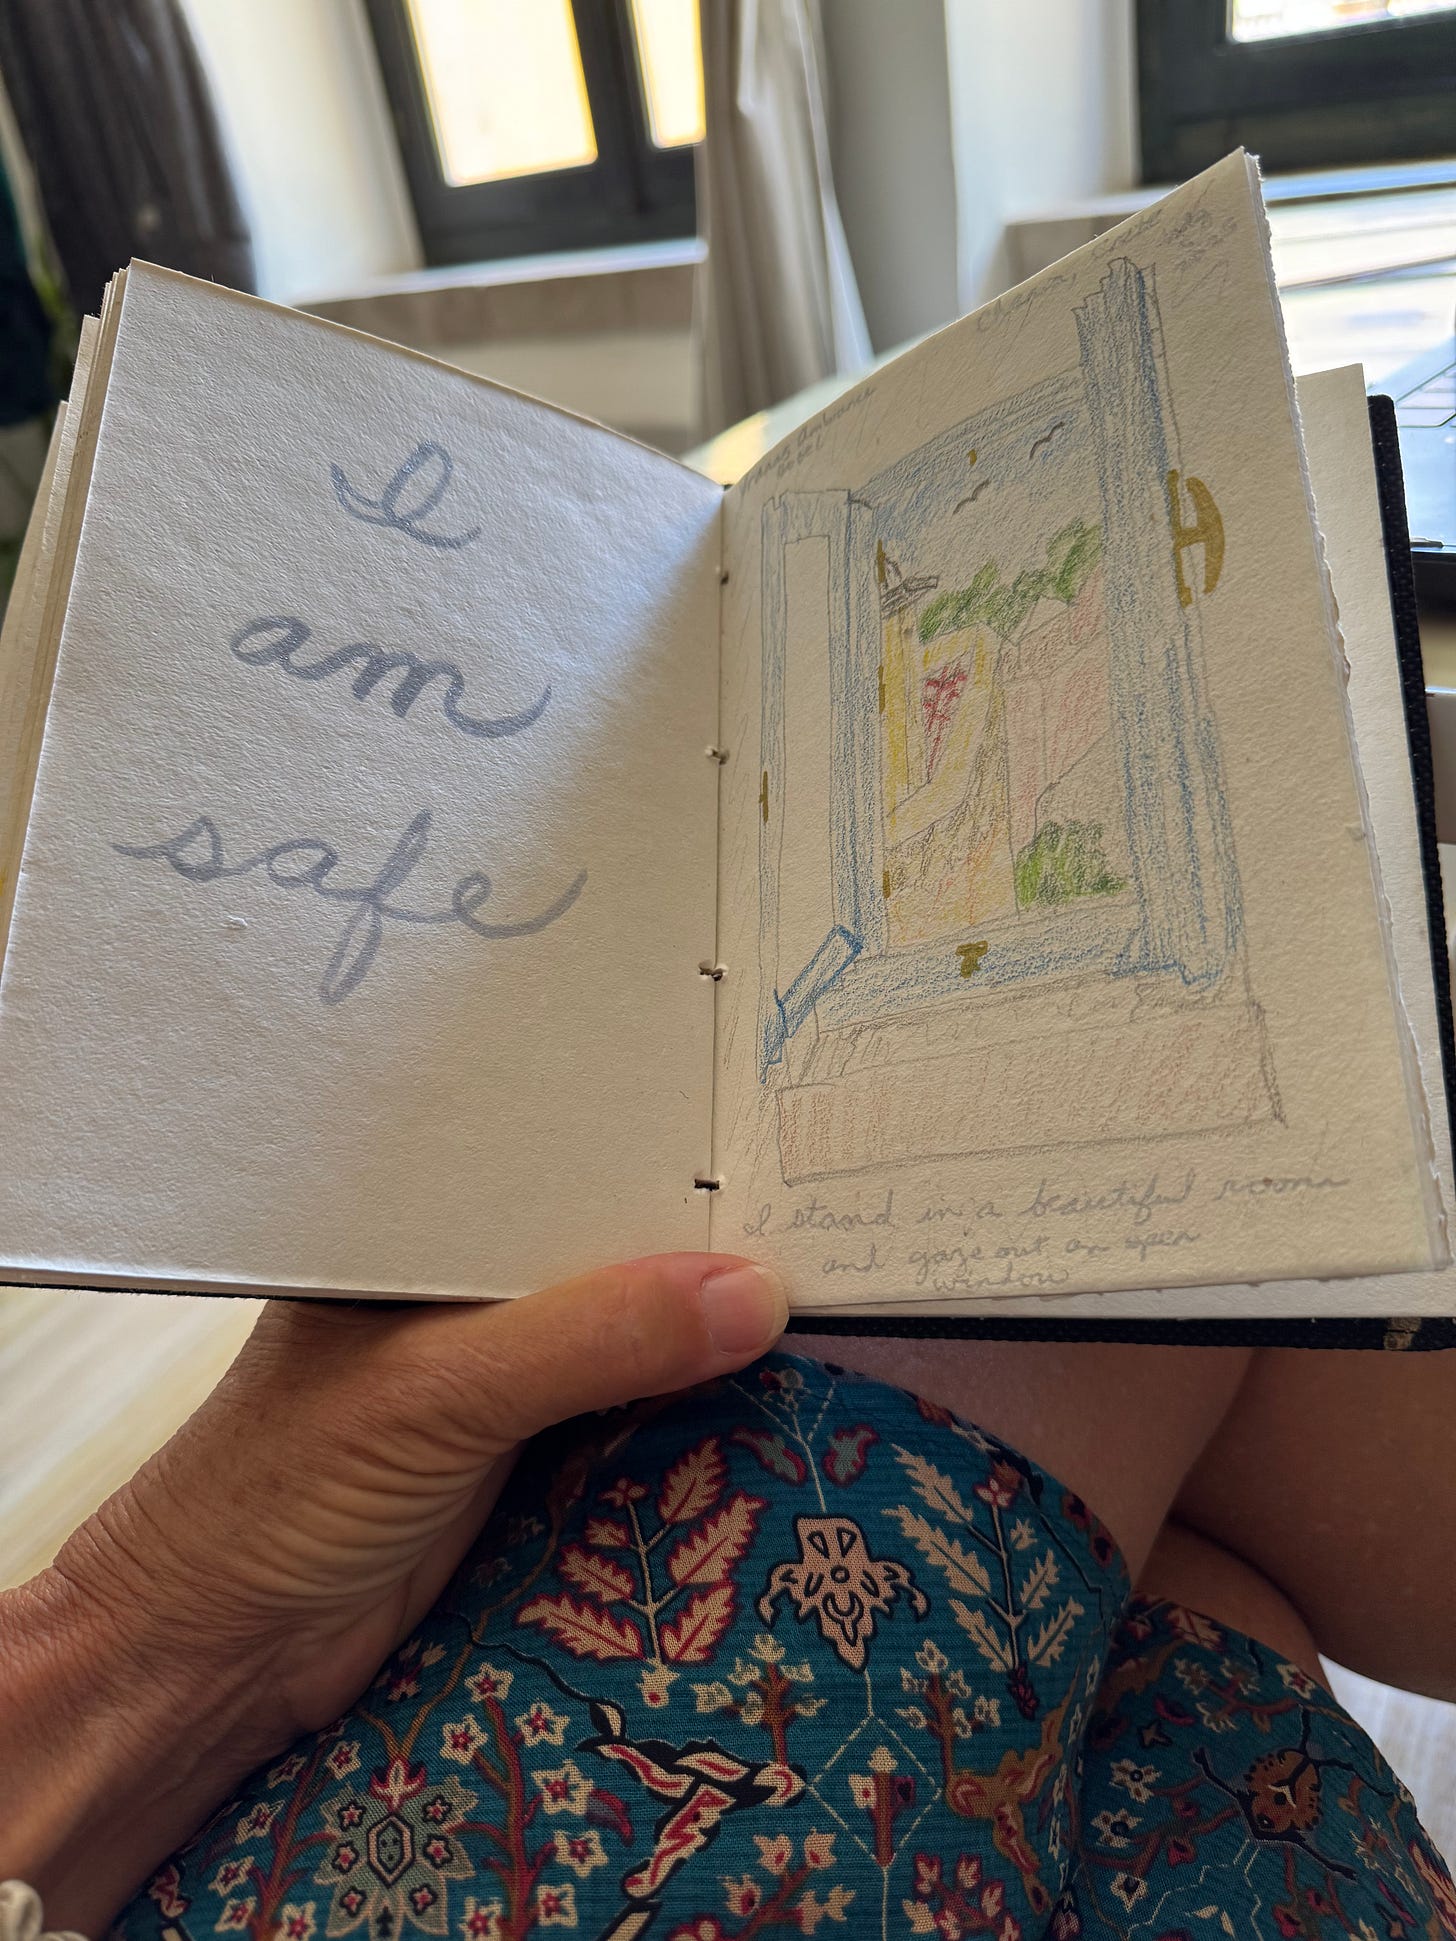 I
am
safe
Ambiance
Hotel
Chania, Crete
I stand in a beautiful room
and gaze out an open
window